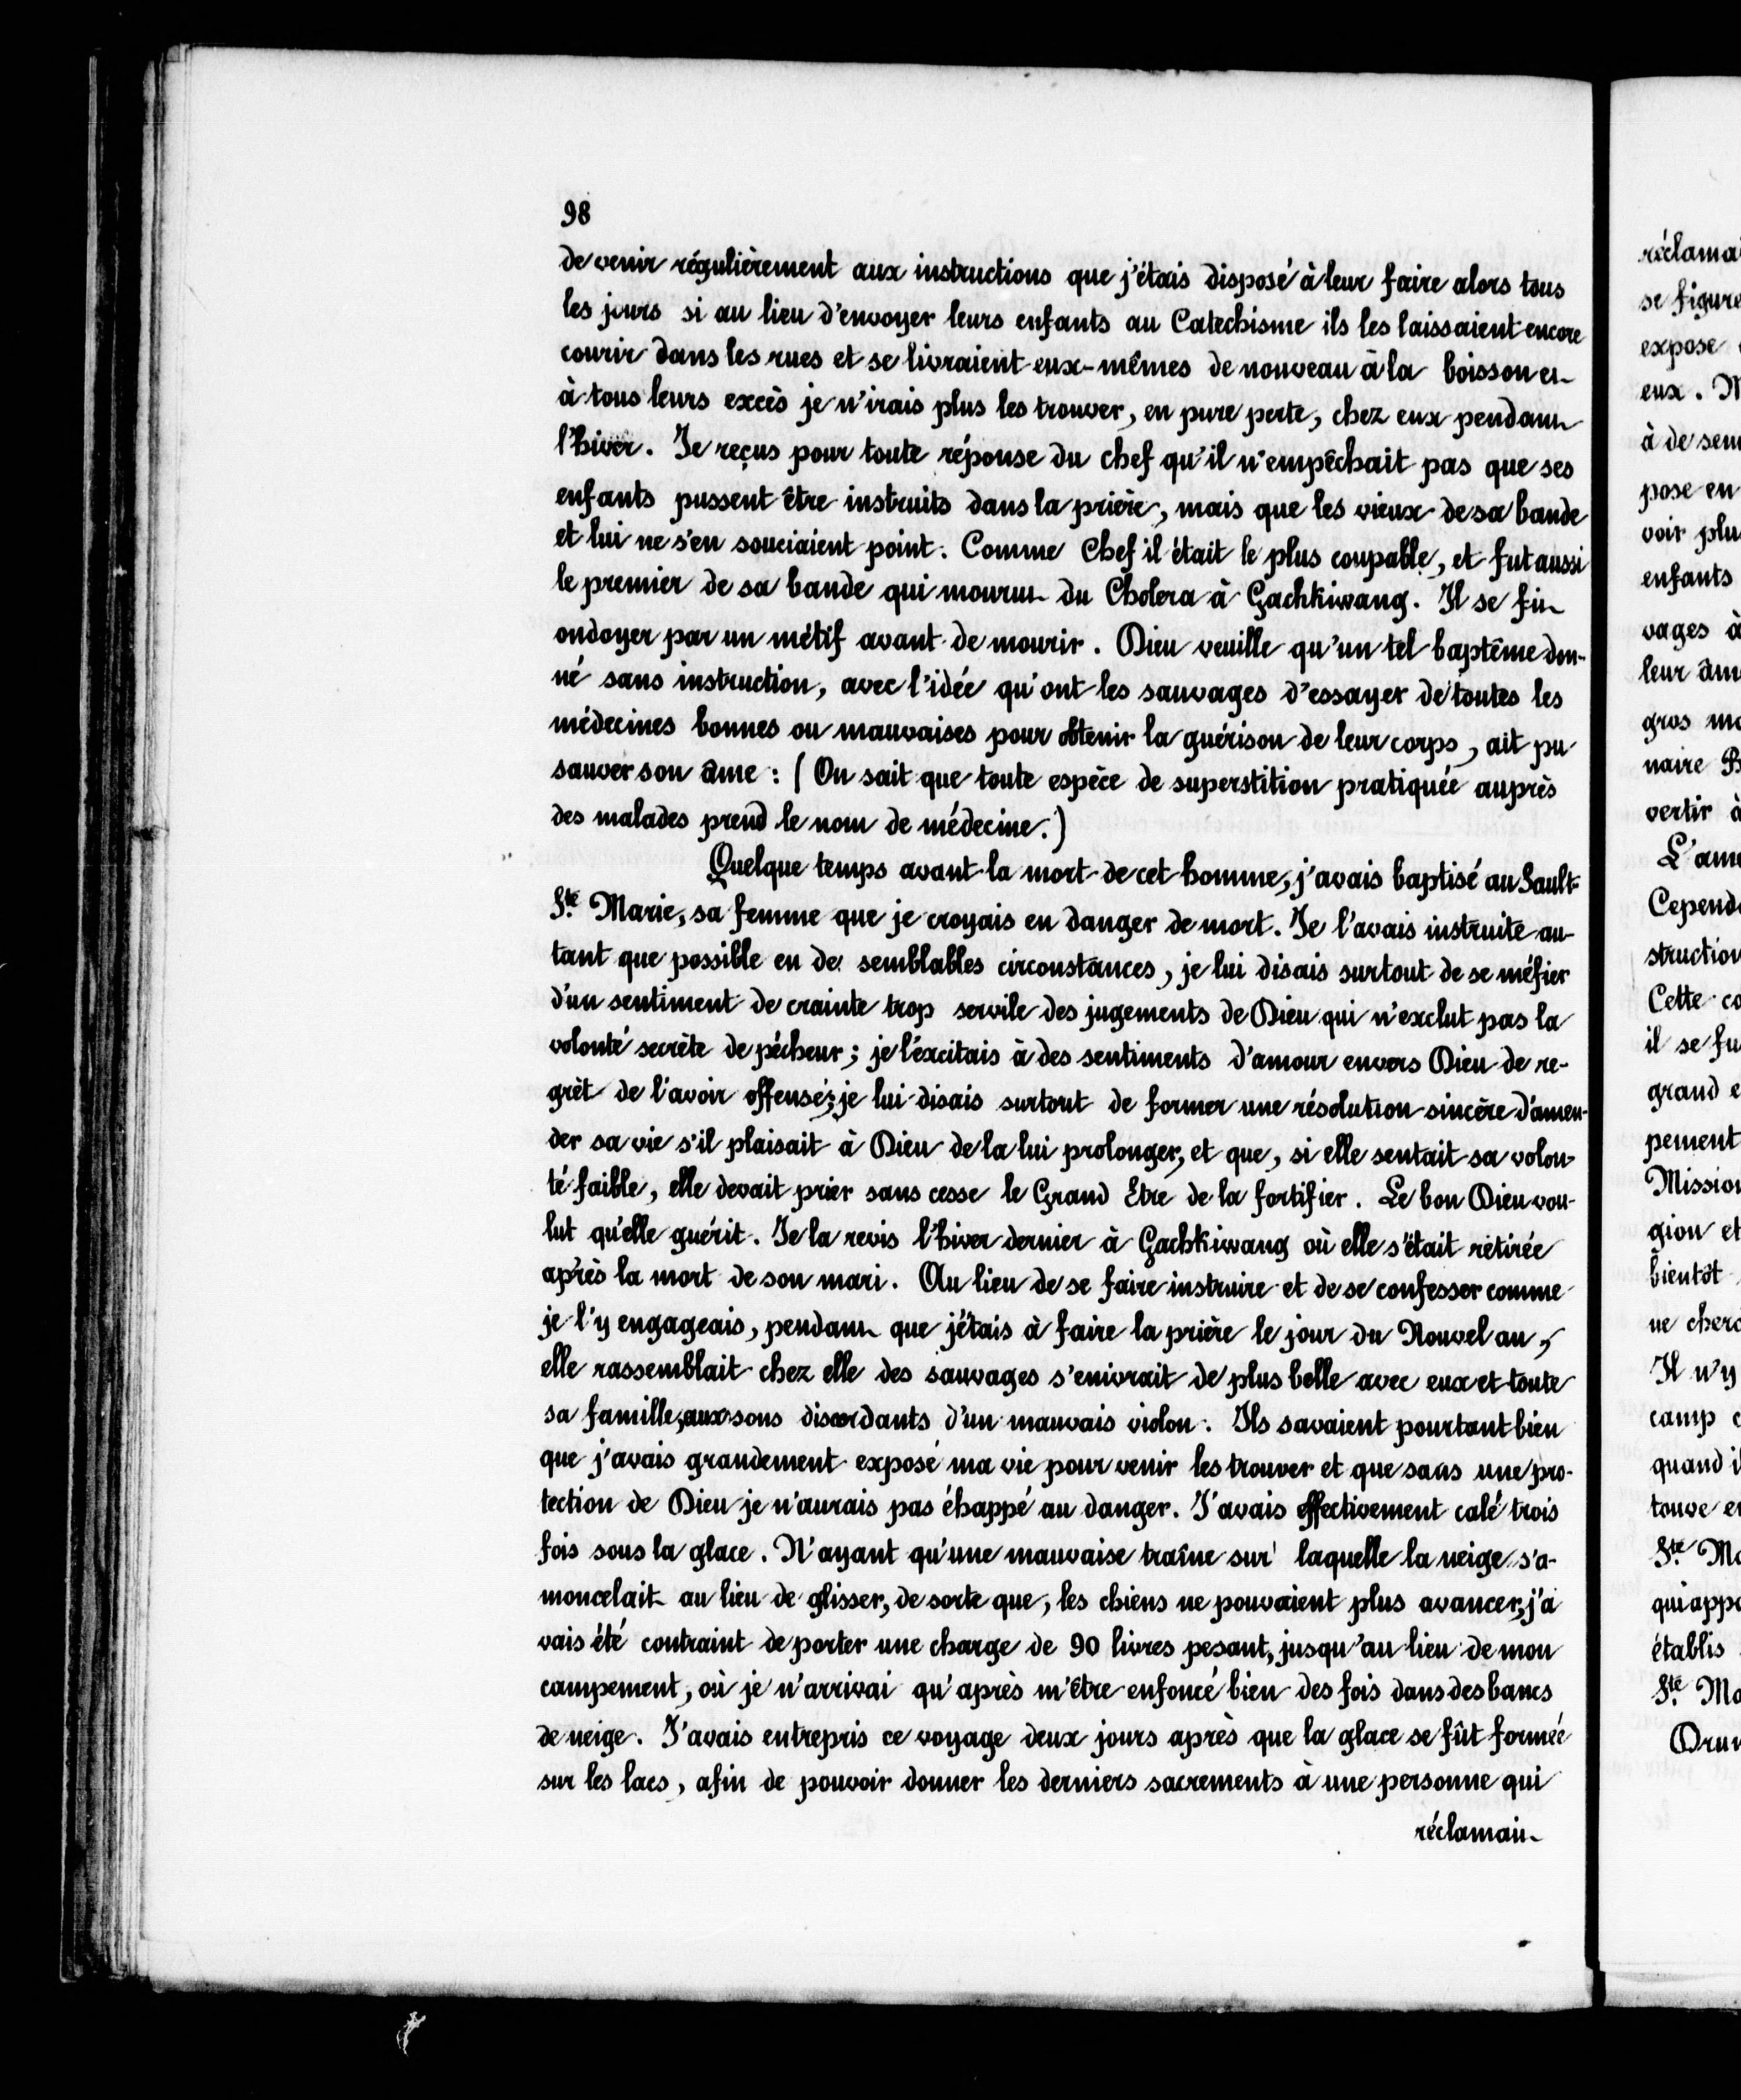 98
de venir régulièrement aux instructions que j'étais disposé à leur faire alors tous
les jours si au lieu d'envoyer leurs enfants au Catechisme ils les laissaient encore
courir dans les rues et se livraient eux-mêmes de nouveau à la boisson et
à tous leurs excès je n'irais plus les trouver, en pure perte, chez eux pendant
l'hiver. Je reçus pour toute réponse du chef qu'il n'empêchait pas que ses
enfants pussent être instruits dans la prière, mais que les vieux de sa bande
et lui ne s'en souciaient point. Comme Chef il était le plus coupable, et fut aussi
le premier de sa bande qui mourut du Cholera à Gachkiwang. Il se fit
ondoyer par un métif avant de mourir. Dieu veuille qu'un tel baptême don-
né sans instruction, avec l'idée qu'ont les sauvages d'essayer de toutes les
médecines bonnes ou mauvaises pour obtenir la guérison de leur corps, ait pu
sauver son âme : (On sait que toute espèce de superstition pratiquée auprès
des malades prend le nom de médecine.)
Quelque temps avant la mort de cet homme, j'avais baptisé au Sault-
Ste. Marie, sa femme que je croyais en danger de mort. Je l'avais instruite au-
tant que possible en de semblables circonstances, je lui disais surtout de se méfier
d'un sentiment de crainte trop servile des jugements de Dieu qui n'exclut pas la
volonté secrète de pécheur; je l'éxcitais à des sentiments d'amour envers Dieu de re-
grèt de l'avoir offensé; je lui disais surtout de former une résolution sincère d'amen-
der sa vie s'il plaisait à Dieu de la lui prolonger, et que, si elle sentait sa volon-
té faible, elle devait prier sans cesse le Grand Etre de la fortifier. Le bon Dieu vou-
lut qu'elle guérit. Je la revis l'hiver dernier à Gachkiwang où elle s'était retirée
après la mort de son mari. Au lieu de se faire instruire et de se confesser comme
je l'y engageais, pendant que j'étais à faire la prière le jour du Nouvel an,
elle rassemblait chez elle des sauvages s'enivrait de plus belle avec eux et toute
sa famille, aux sons discordants d'un mauvais violon. Ils savaient pourtant bien
que j'avais grandement exposé ma vie pour venir les trouver et que sans une pro-
tection de Dieu je n'aurais pas éhappé au danger. J'avais effectivement calé trois
fois sous la glace. N'ayant qu'une mauvaise traîne sur laquelle la neige s'a-
moncelait au lieu de glisser, de sorte que, les chiens ne pouvaient plus avancer, j'a
vais été contraint de porter une charge de 90 livres pesant, jusqu'au lieu de mon
campement, où je n'arrivai qu'après m'être enfoncé bien des fois dans des bancs
de neige. J'avais entrepris ce voyage deux jours après que la glace se fût formée
sur les lacs, afin de pouvoir donner les derniers sacrements à une personne qui
réclamait
réclamai
se figure
expose
eux. M
à de sem
pose en
voir plu
enfants
vages à
leur âm
gros mo
naire B
vertir à
L'ame
Cepend
struction
Cette co
il se fu
grand e
pement
Mission
gion et
bientôt
ne cherc
Il n'y
camp c
quand il
touve en
Ste. Ma
qui appa
établis
Ste. Ma
Drum